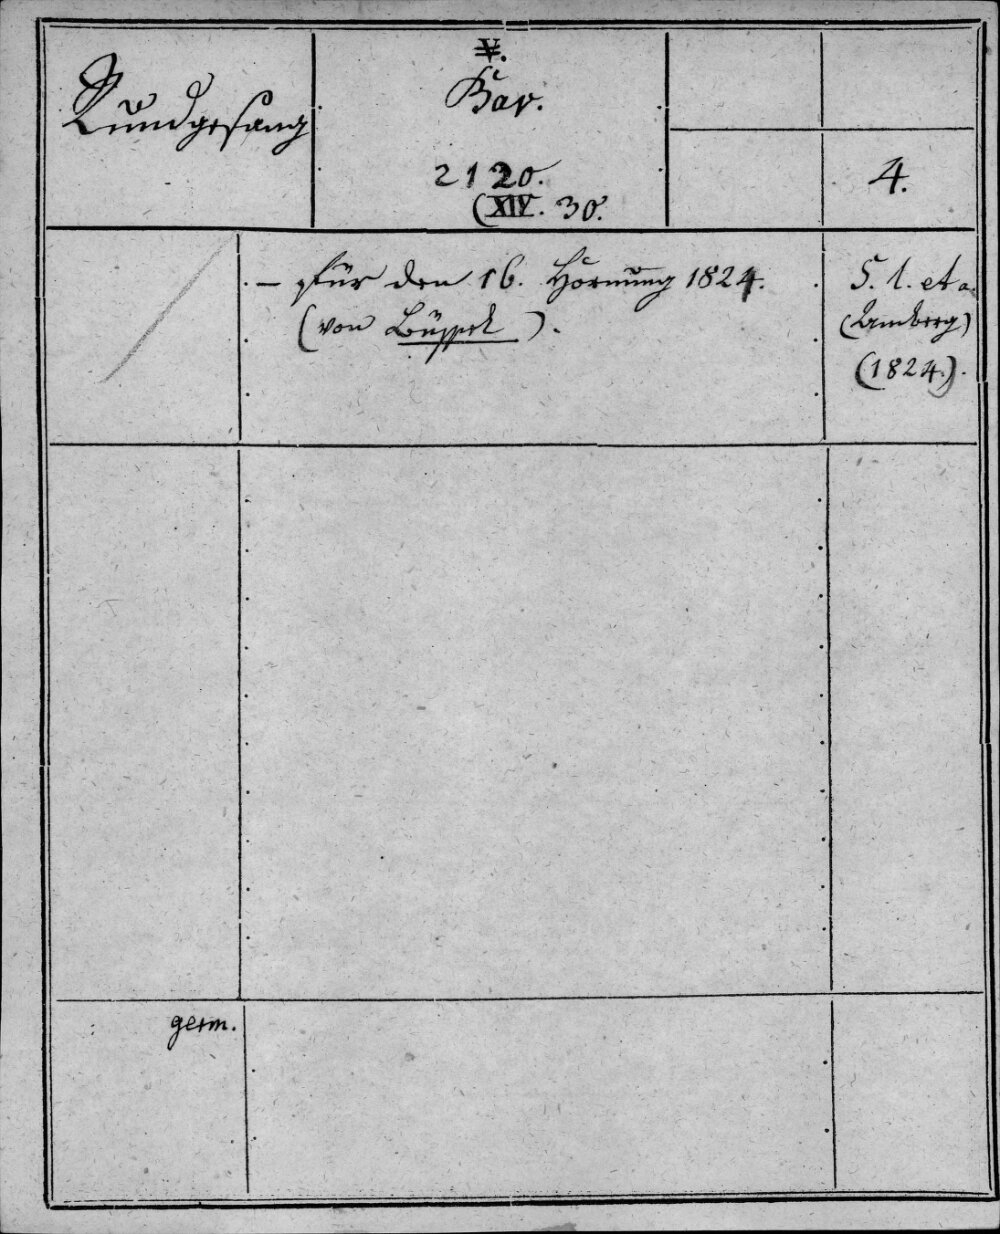 Rundgesang
V.
Bav.
2120.
(XIV. 30.
4.
— für den 16. Hornung 1824.
(von Büssel).
S. l. et a.
(Amberg)
(1824.).
germ.